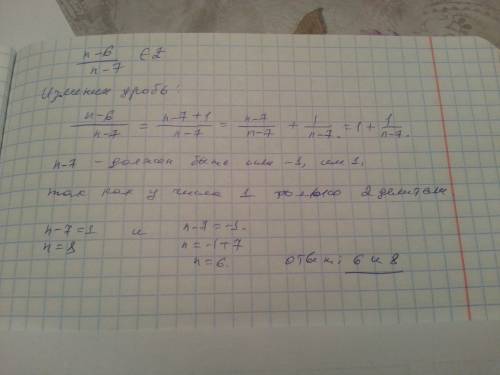 n-6/n-7 ∈Z
Изменим дробь:
n-6/n-7 = n-7+1/n-7 = n-7/n-7 + 1/n-7. = 1 + 1/n-7.
n-7 - должен быть или -1, или 1,
так как у числа 1 только 2 делителя
n-7=1 и n-7=-1.
n=8 n=-1+7
n=6. ответ: 6 и 8